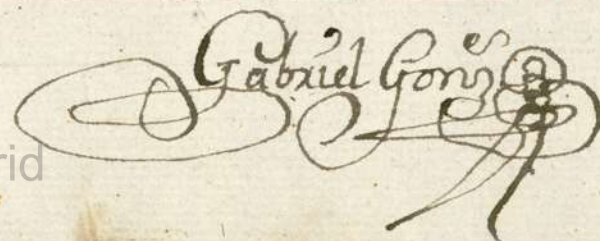 Gabriel Gonz^es
rid